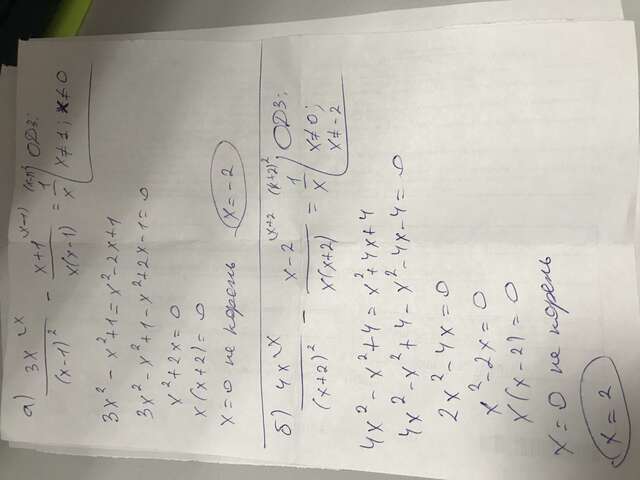 а) 3x \x / (x-1)² - x+1 \(x-1) / x(x-1) = 1 \(x-1)² / x | ОДЗ: x≠1; x≠0
3x² - x² + 1 = x² - 2x + 1
3x² - x² + 1 - x² + 2x - 1 = 0
x² + 2x = 0
x(x+2) = 0
x = 0 не корень x = -2
б) 4x \x / (x+2)² - x-2 \x+2 / x(x+2) = 1 \(x+2)² / x | ОДЗ: x≠0; x≠-2
4x² - x² + 4 = x² + 4x + 4
4x² - x² + 4 - x² - 4x - 4 = 0
2x² - 4x = 0
x² - 2x = 0
x(x-2) = 0
x = 0 не корень
x = 2